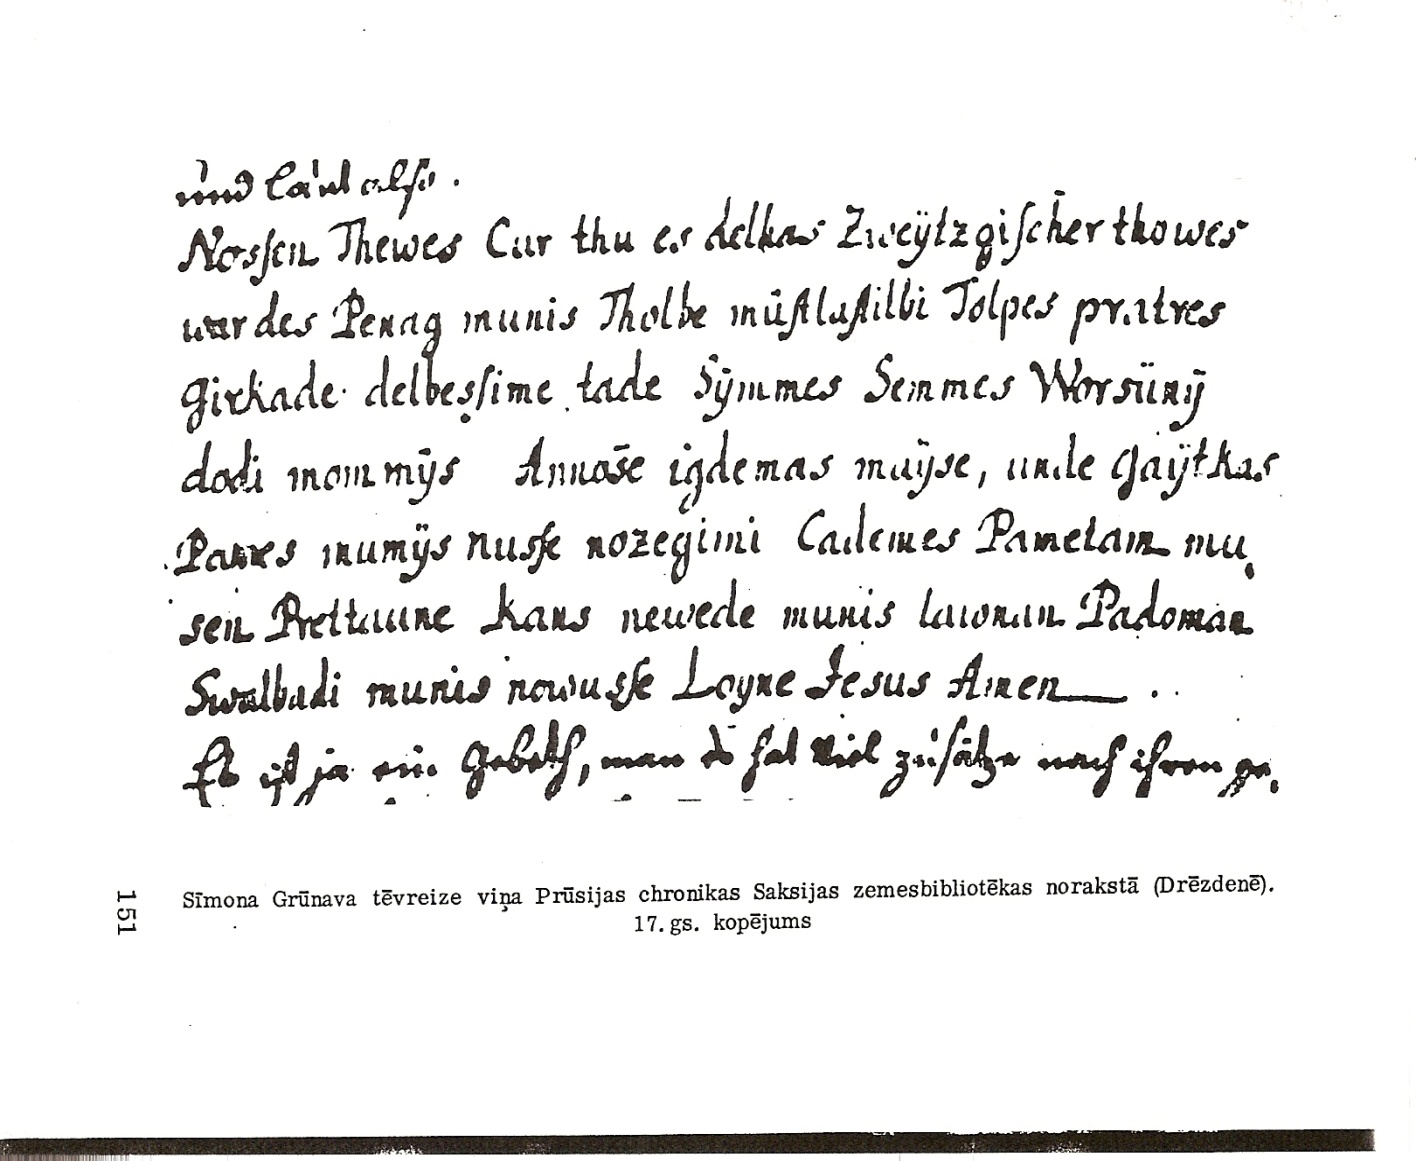 und laut also.
Nossen Thewes Cur thu es delkas Zweÿtzgischer thowes
wardes Penag munis Tholbe mûstlastilbi Tolpes pratres
girkade delbessime tade Sÿmmes Semmes Worsünÿ
dodi mommÿs Annose igdemas maÿse, unde gaÿtkas
Pames mumÿs nusse nozegimi Cademes Pametam mu,
sen Prettaune kans newede munis lawnan Padoman
Swalbadi munis nowusse Loyne Jesus Amen ..
Es ist ja ein Gebeth, man d hat viel zusätze nach ihren ge,
151
Sīmona Grūnava tēvreize viņa Prūsijas chronikas Saksijas zemesbibliotēkas norakstā (Drēzdenē).
17. gs. kopējums